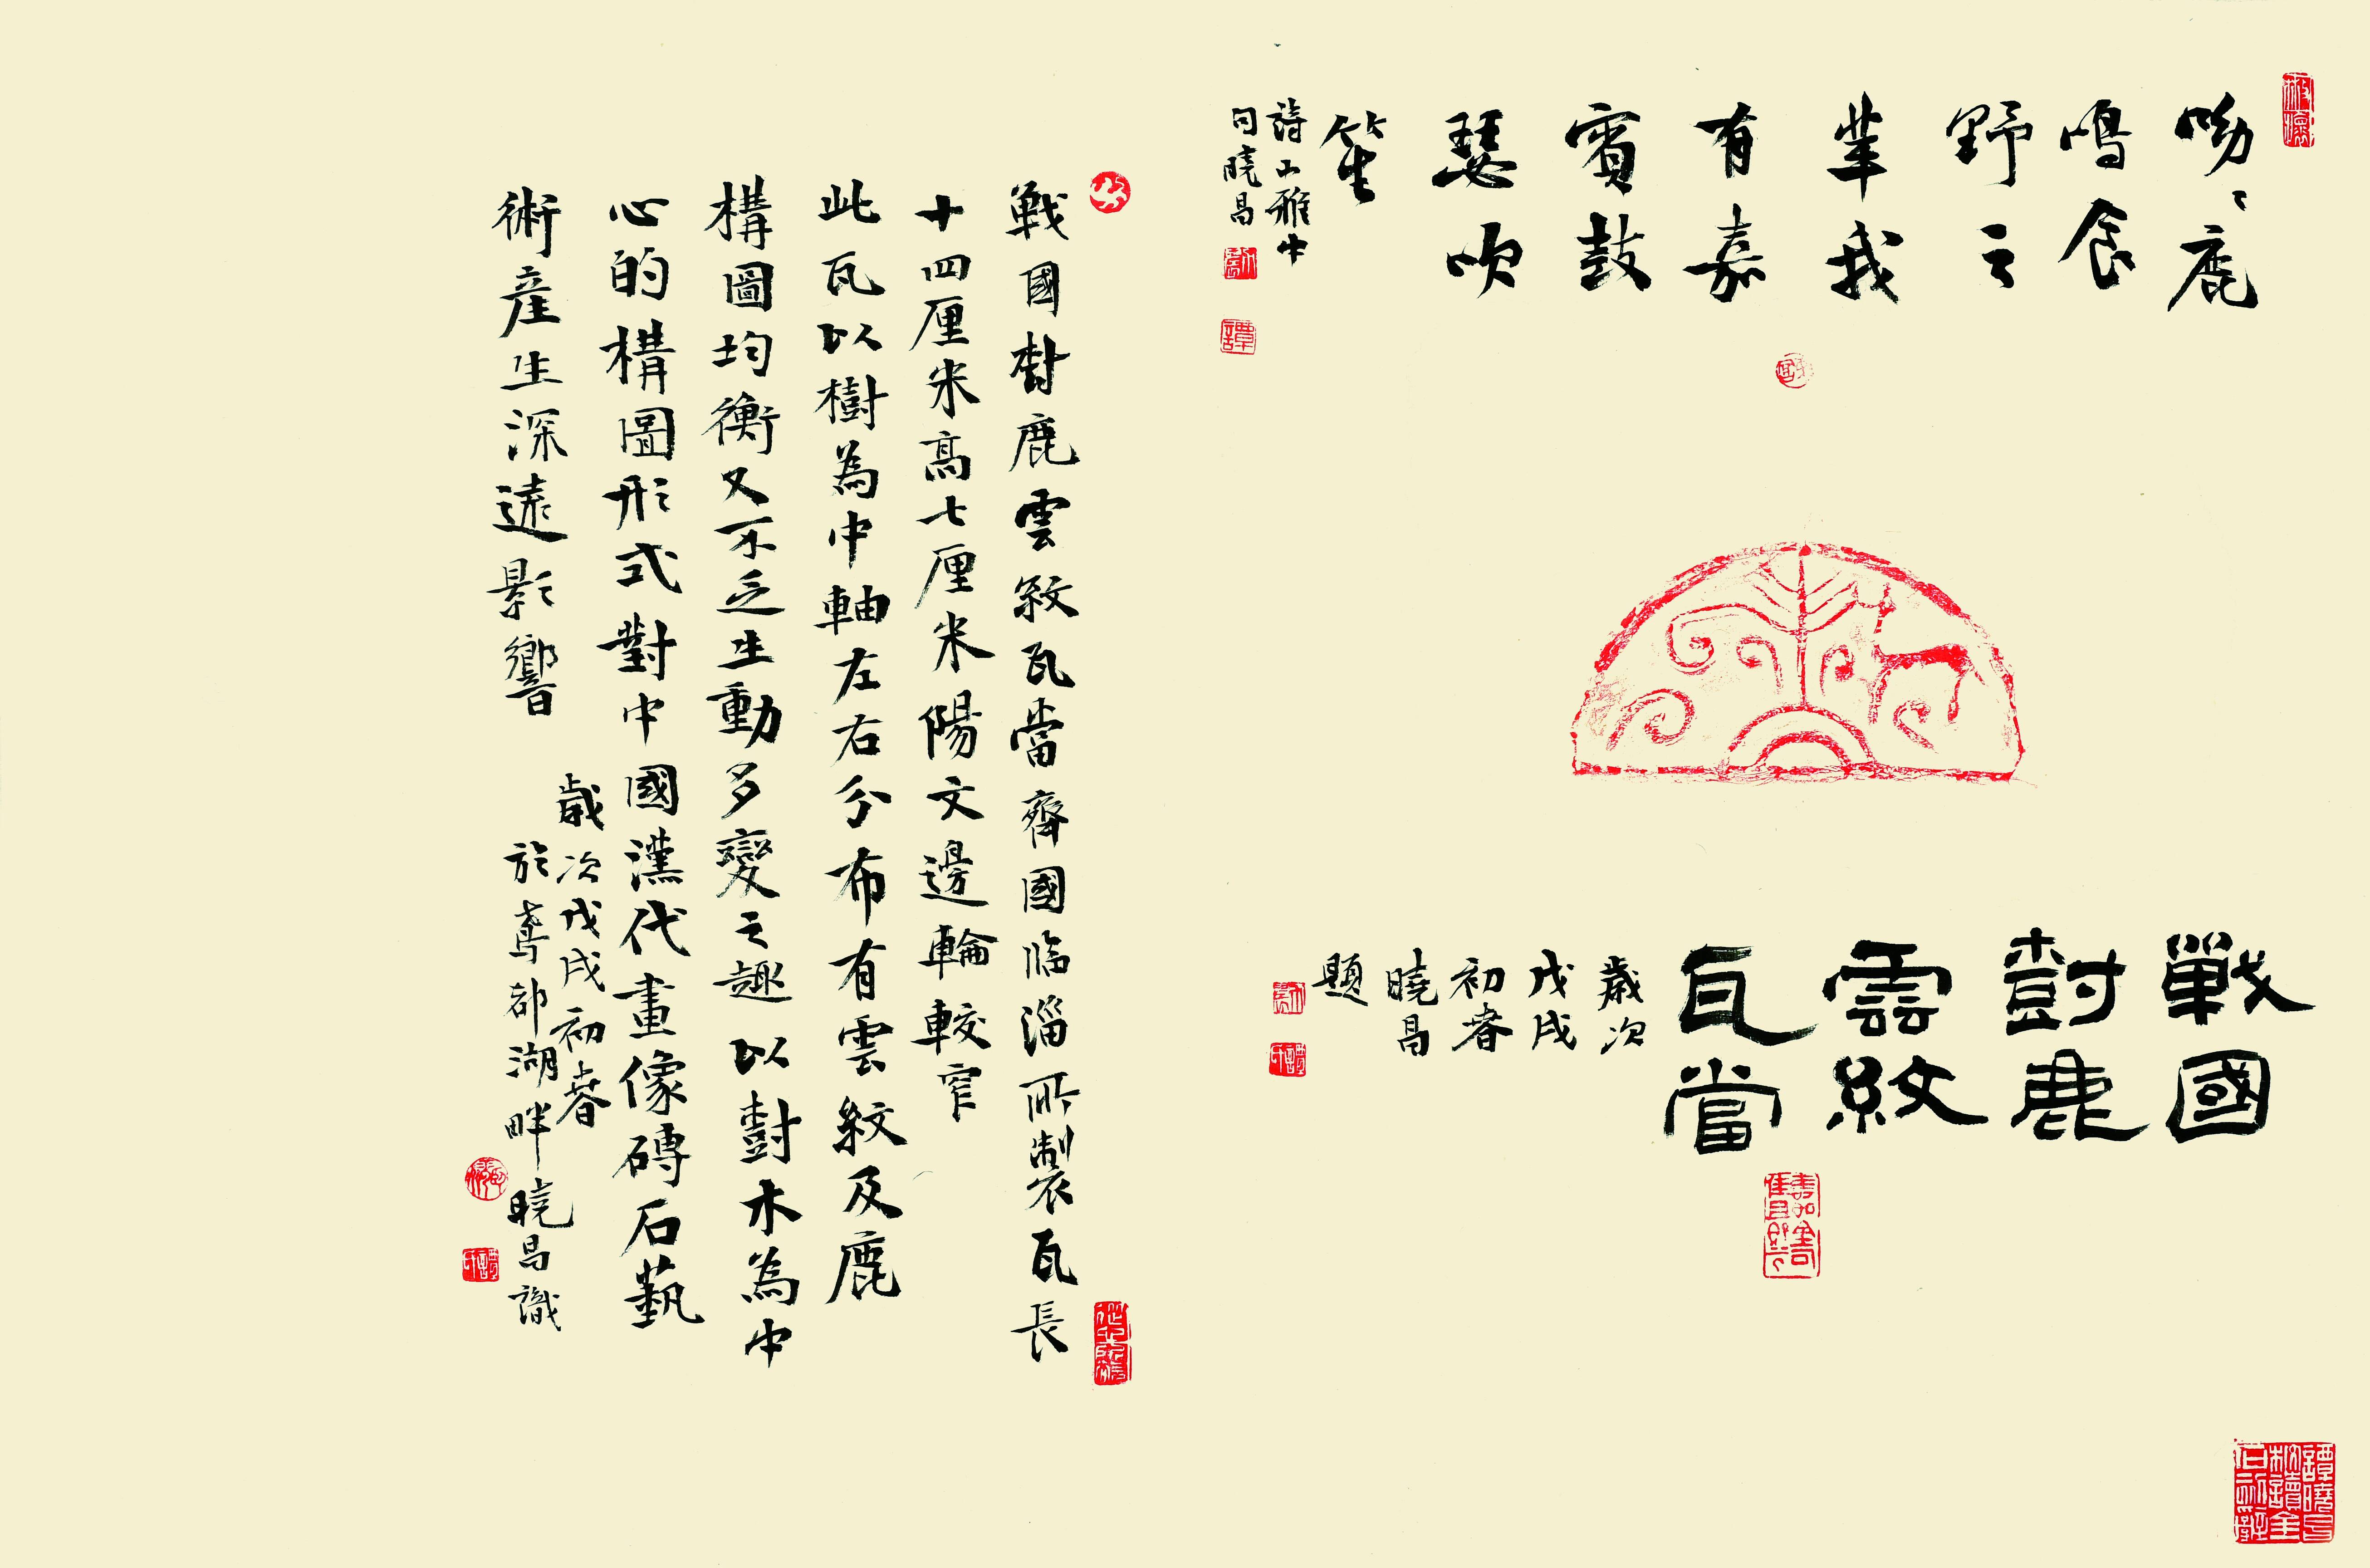 呦〻鹿
鳴食
野之
苹我
有嘉
賓鼓
瑟吹
笙
詩小雅中
句曉昌
戰國
尌鹿
雲紋
瓦當
歲次
戊戌
初春
曉昌
題
戰國尌鹿雲紋瓦當齊國臨淄所製瓦長
十四厘米高七厘米陽文邊輪較窄
此瓦以樹為中軸左右分布有雲紋及鹿
構圖均衡又不乏生動多變之趣以尌木為中
心的構圖形式對中國漢代畫像磚石藝
術産生深遠影響
歲次戊戌初春
於鳶都湖畔曉昌識